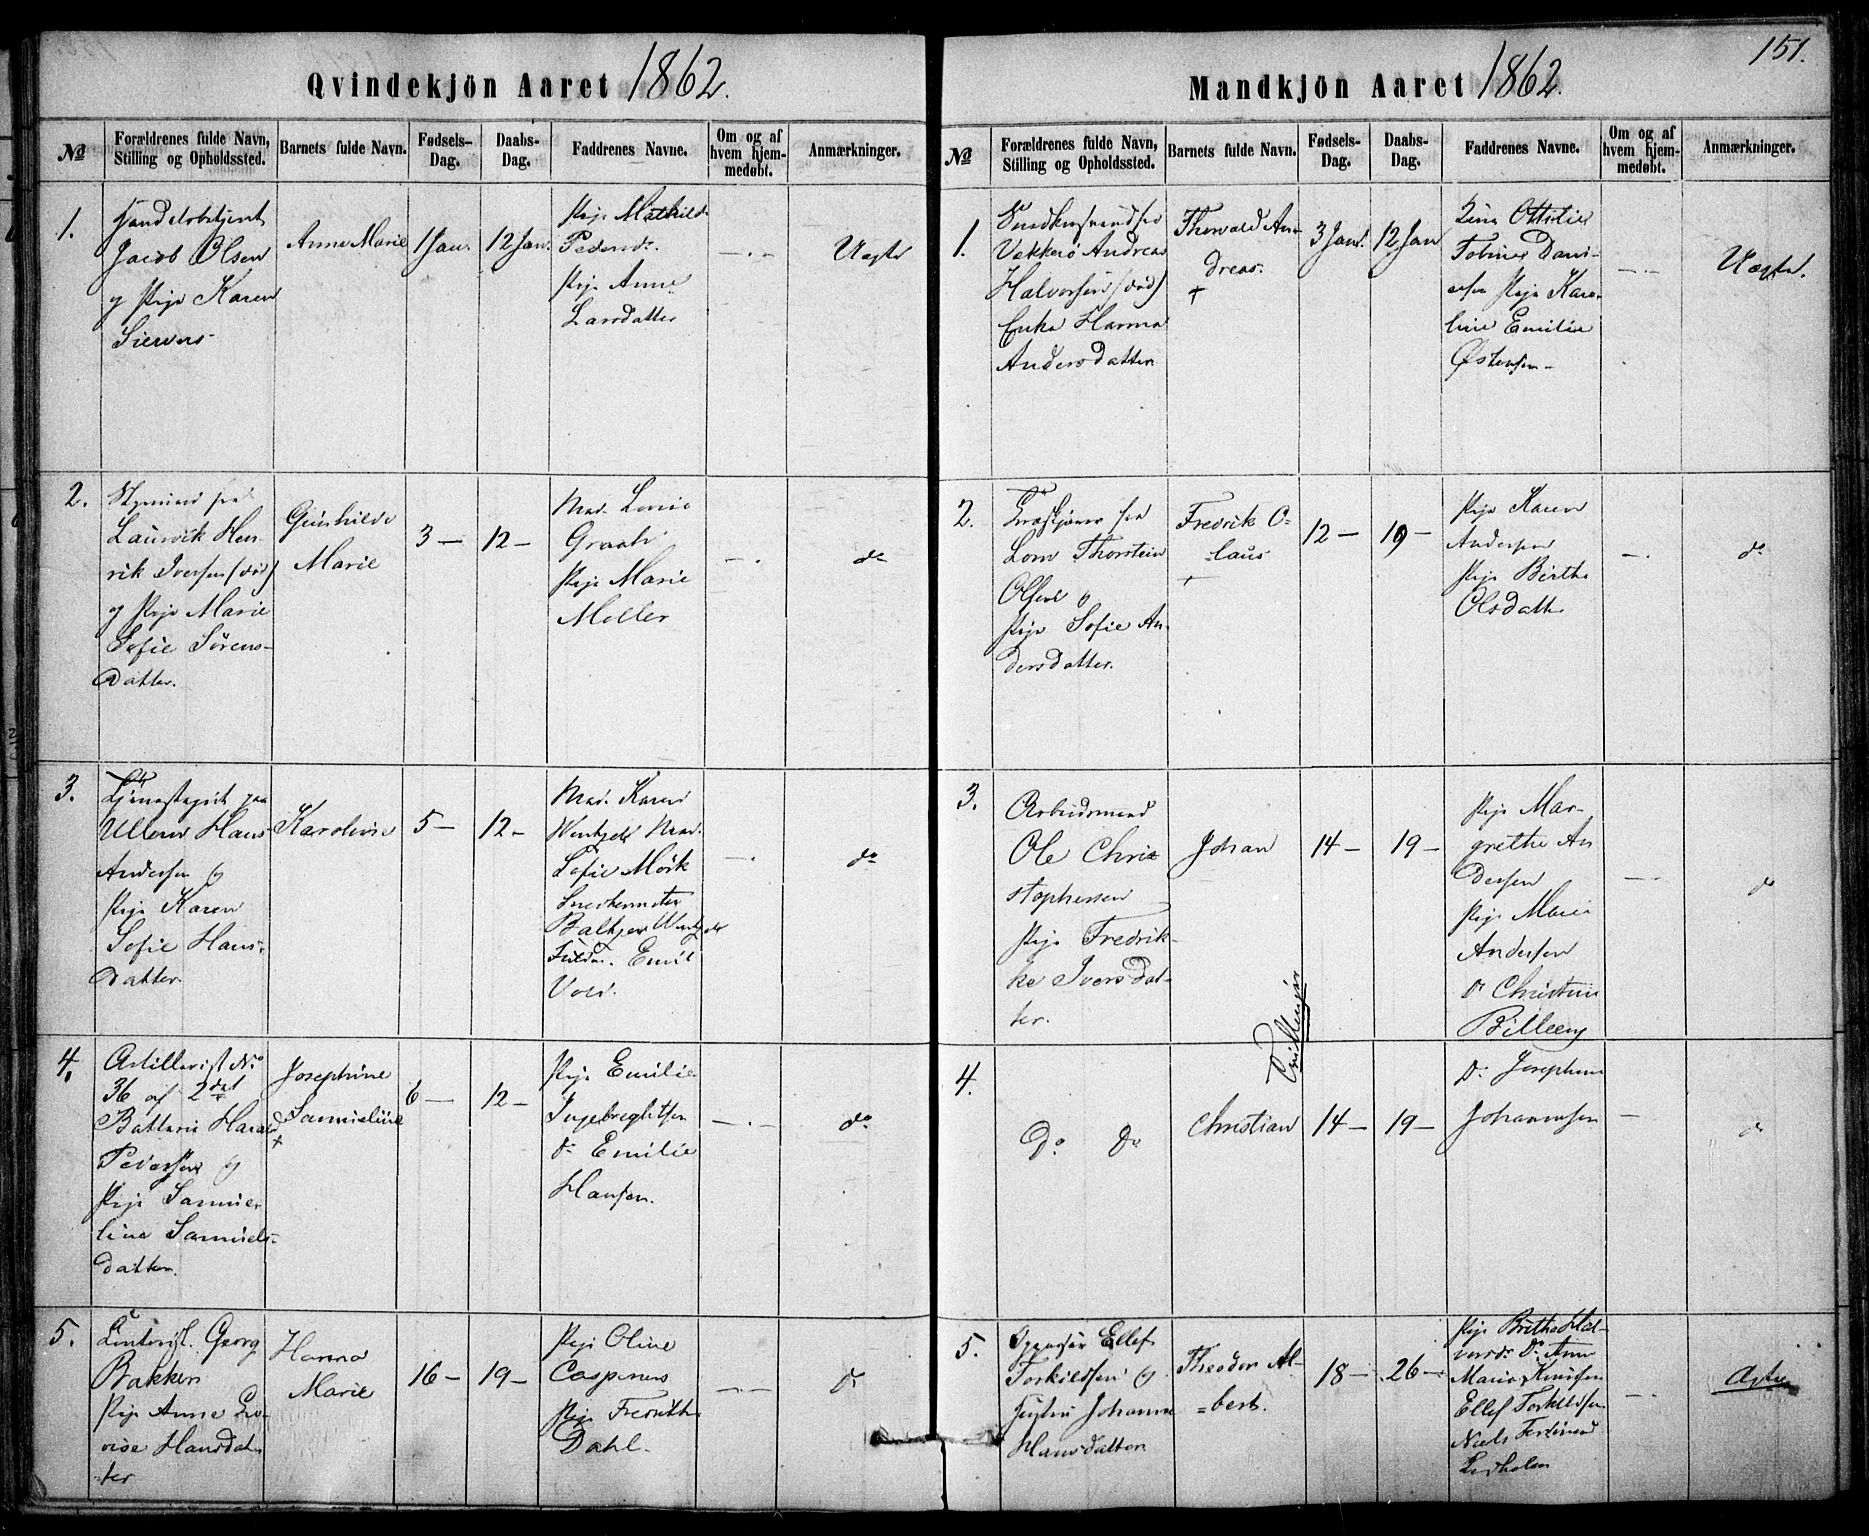 Qvindekjön Aaret 1862.
№
Forældrenes fulde Navn,
Stilling og Opholdssted.
Barnets fulde Navn.
Fødsels-
Dag.
Daabs-
Dag.
Faddrenes Navne.
Om og af
hvem hjem-
medøbt.
Anmærkninger.
1.
Handelsbetjent
Jacob Olsen
og Pige Karen
Sievers
Anne Marie
1 Jan.
12 Jan.
Pige Mathilde
Peders.
Pige Anne
Larsdatter
—.—
Uægte
2.
Styrmand fra
Laurvik Hen-
rik Iversen (død)
og Pige Marie
Sofie Sørens-
datter.
Gunhilde
Marie
3 —
12 —
Mad. Lovise
Pige Marie
Møller
—.
do
3.
Tjenestegut paa
Ullern Hans
Andersen og
Pige Karen
Sofie Hans-
datter.
Karoline
5 —
12 —
Mad. Karen
Mad.
Sofie Mörk
Emil
Vold.
—.
do
4.
Artillerist No
36 af 2det
Batterie Harald
Pedersen og
Pige Samue-
line Samuels-
datter.
Josephine
Samueline
+
6 —
12 —
Pige Emilie
Ingebregtsen
do Emilie
Hansen.
—.—
do
5.
Georg
Bakken
Pige Anne Lo-
vise Hansdat-
ter
Hanna
Marie
16 —
19 —
Pige Oline
Caspersen
Pige Fredrikke
Dahl.
—.—
do
151.
Mandkjön Aaret 1862.
№
Forældrenes fulde Navn,
Stilling og Opholdssted.
Barnets fulde Navn.
Fødsels-
Dag.
Daabs-
Dag.
Faddrenes Navne.
Om og af
hvem hjem-
medøbt.
Anmærkninger.
1.
Snedkersvend fra
Vækkerø Andreas
Halvorsen (død)
Enke Hanna
Andersdatter
Thorvald An-
dreas.
+
3 Jan.
12 Jan
Ottilie
Tobine Dani-
elsen Pige Karo-
line Emilie
Østensen —
—.—
Uægte.
2.
fra
Lom Thorstein
Olsen og
Pige Sofie An-
dersdatter.
Fredrik O-
laus
+
12 —
19 —
Pige Karen
Andersen
Pige Berthe
Olsdatter
—.
do
3.
Arbeidsmand
Ole Chri-
stophersen
Pige Fredrik-
ke Iversdat-
ter.
Johan
14 —
19 —
Pige Mar-
grethe An
dersen
Pige Marie
Andersen
do Christine
Billeng
—.—
do
Tvillinger
4.
Do do
Christian
14 —
19 —
Do Josephine
Johannesen
—
do
5.
Ellef
Torkildsen og
Hustru Johanne
Hansdatter
Theodor Al-
=bert.
18 —
26 —
Pige Berthe Hal-
vorsd. Do Anne
Marie Knudsen
Ellef Torkildsen
Niels Ferdinand
—.
Ægte